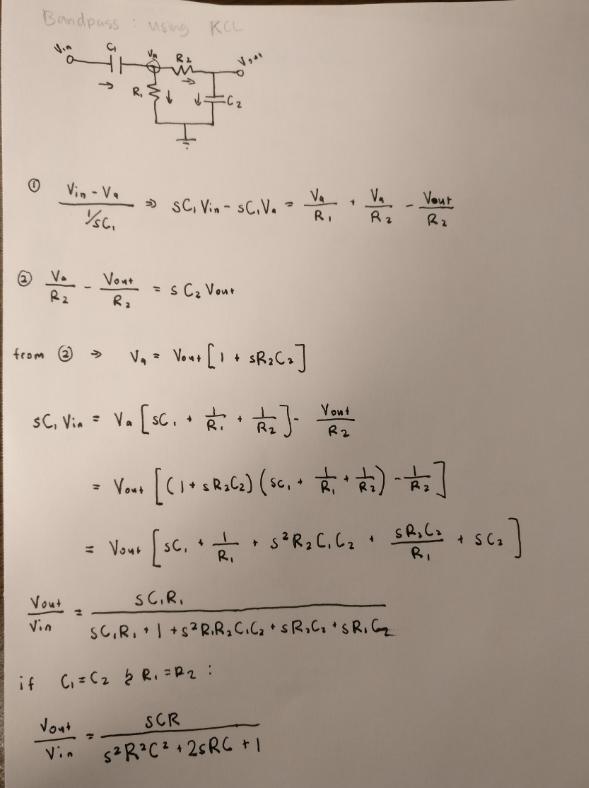 Bandpass : using KCL
Vin C₁ Va R₂ Vout
R₁ C₂
① (Vin - Va)/(1/sC₁) ⇒ sC₁Vin - sC₁Va = Va/R₁ + Va/R₂ - Vout/R₂
② Va/R₂ - Vout/R₂ = sC₂Vout
from ② ⇒ Va = Vout[1 + sR₂C₂]
sC₁Vin = Va[sC₁ + 1/R₁ + 1/R₂] - Vout/R₂
= Vout[(1+sR₂C₂)(sC₁ + 1/R₁ + 1/R₂) - 1/R₂]
= Vout[sC₁ + 1/R₁ + s²R₂C₁C₂ + sR₂C₂/R₁ + sC₂]
Vout/Vin = sC₁R₁/(sC₁R₁ + 1 + s²R₁R₂C₁C₂ + sR₂C₂ + sR₁C₂)
if C₁=C₂ & R₁=R₂ :
Vout/Vin = sCR/(s²R²C² + 2sRC + 1)